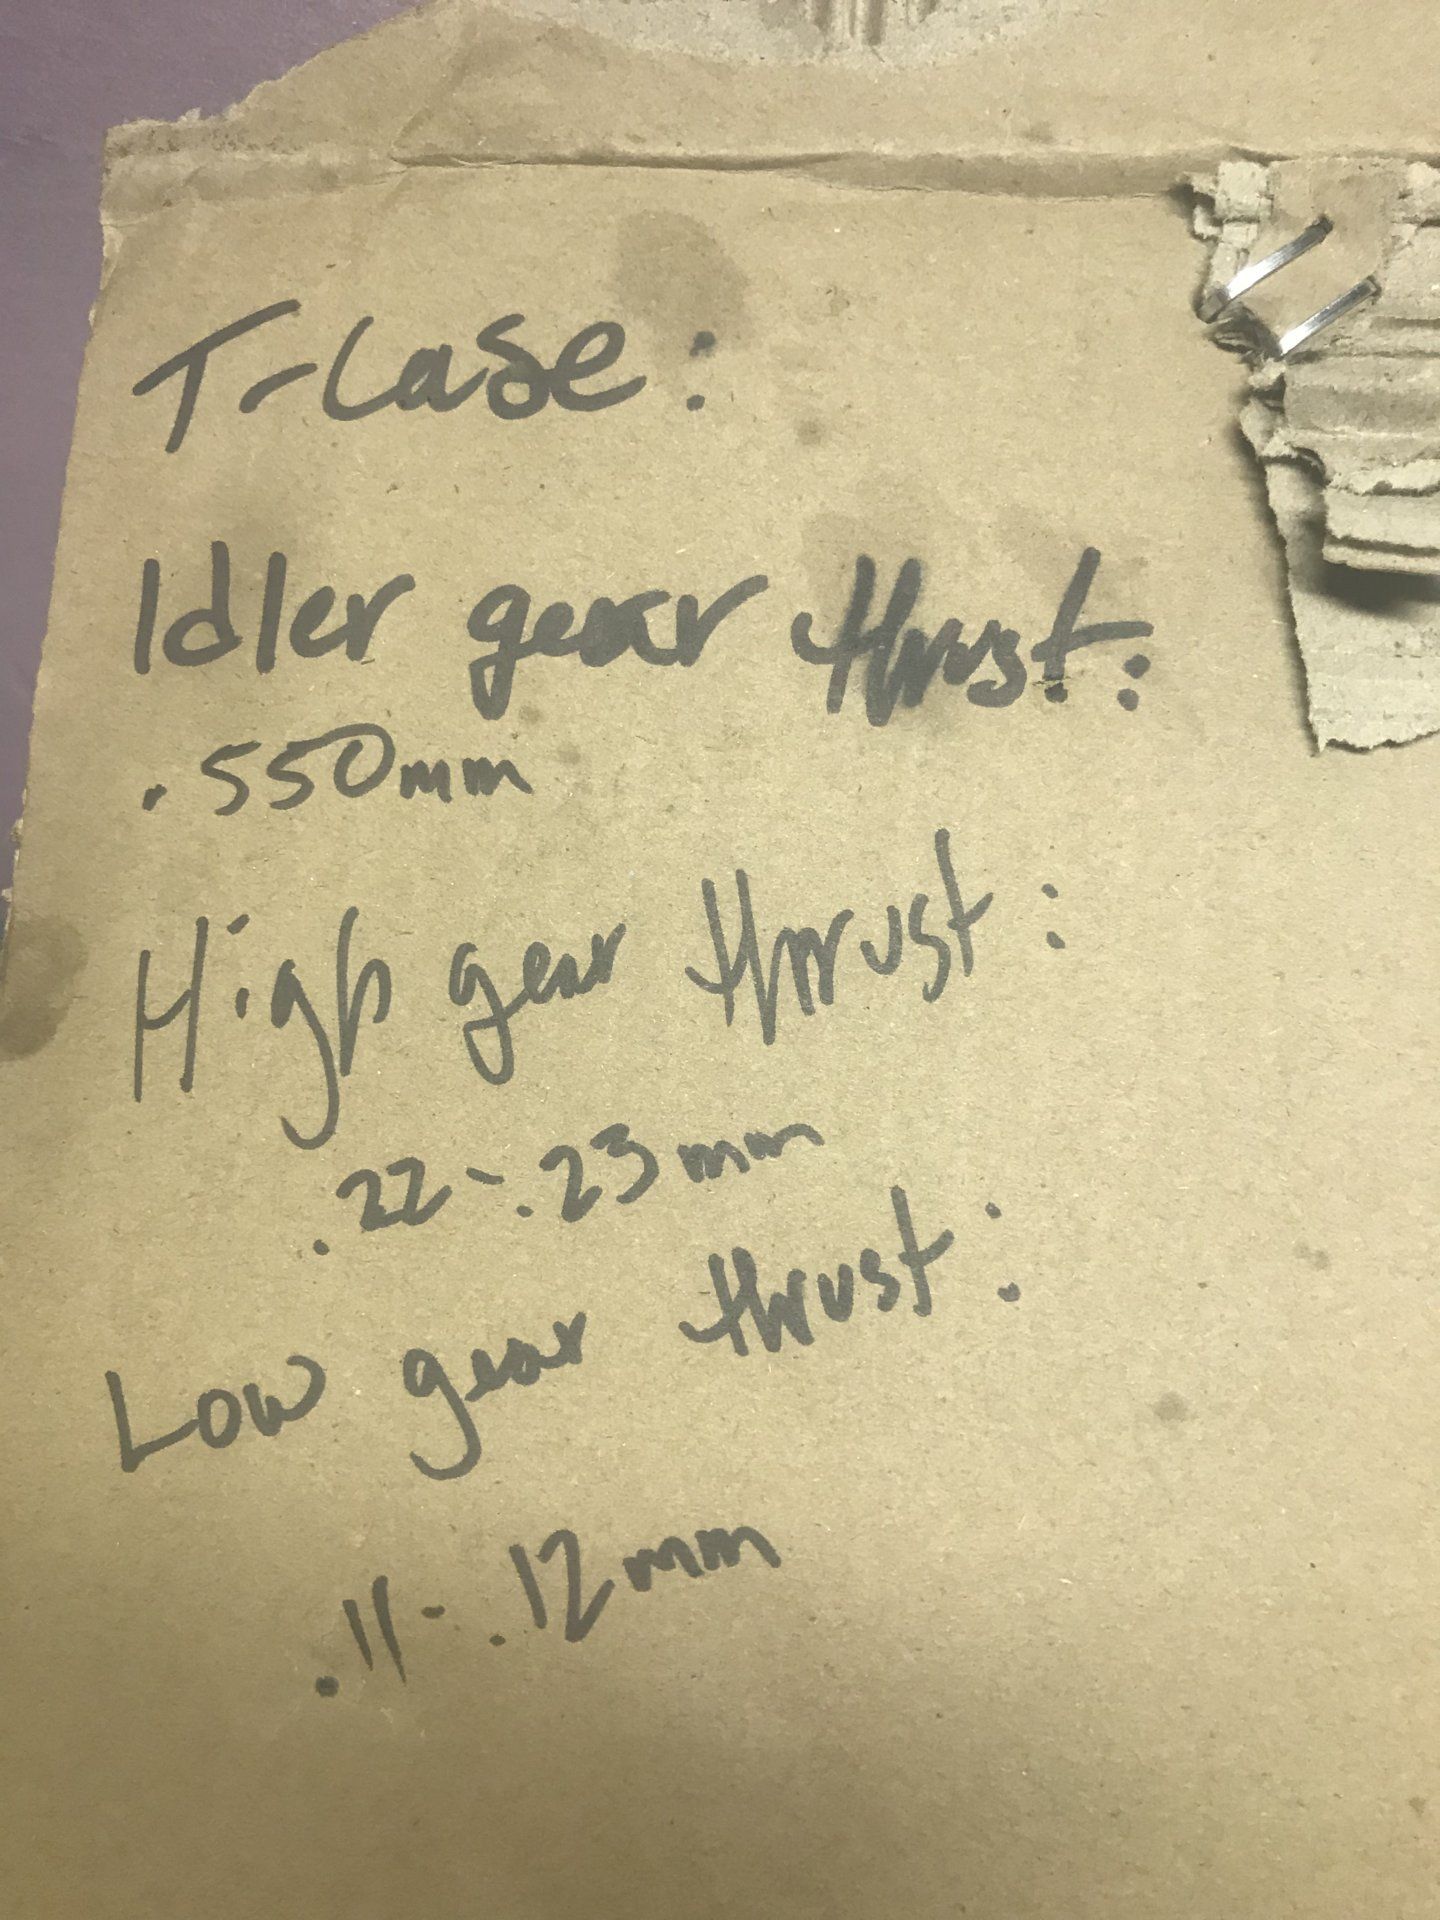 T-Case:
Idler gear thrust:
.550mm
High gear thrust:
.22-.23mm
Low gear thrust:
.11-.12mm